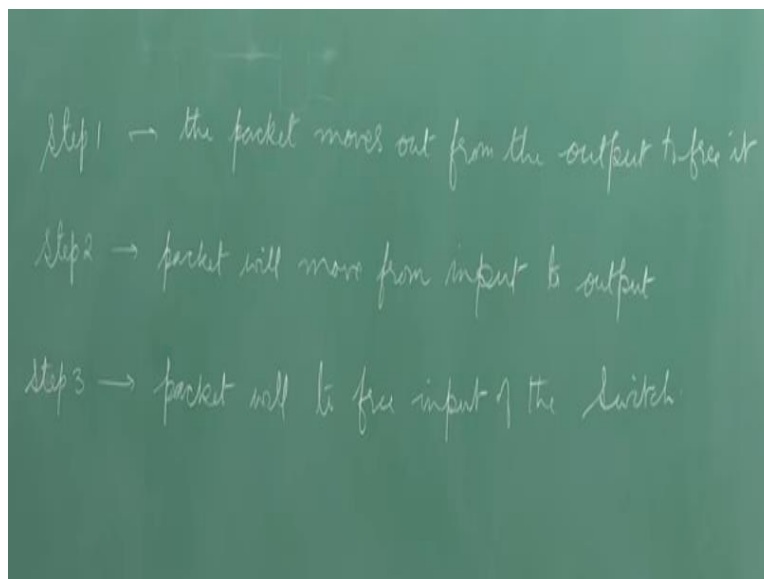 Step 1 → the packet moves out from the output to free it
Step 2 → packet will move from input to output
Step 3 → packet will to free input of the switch.